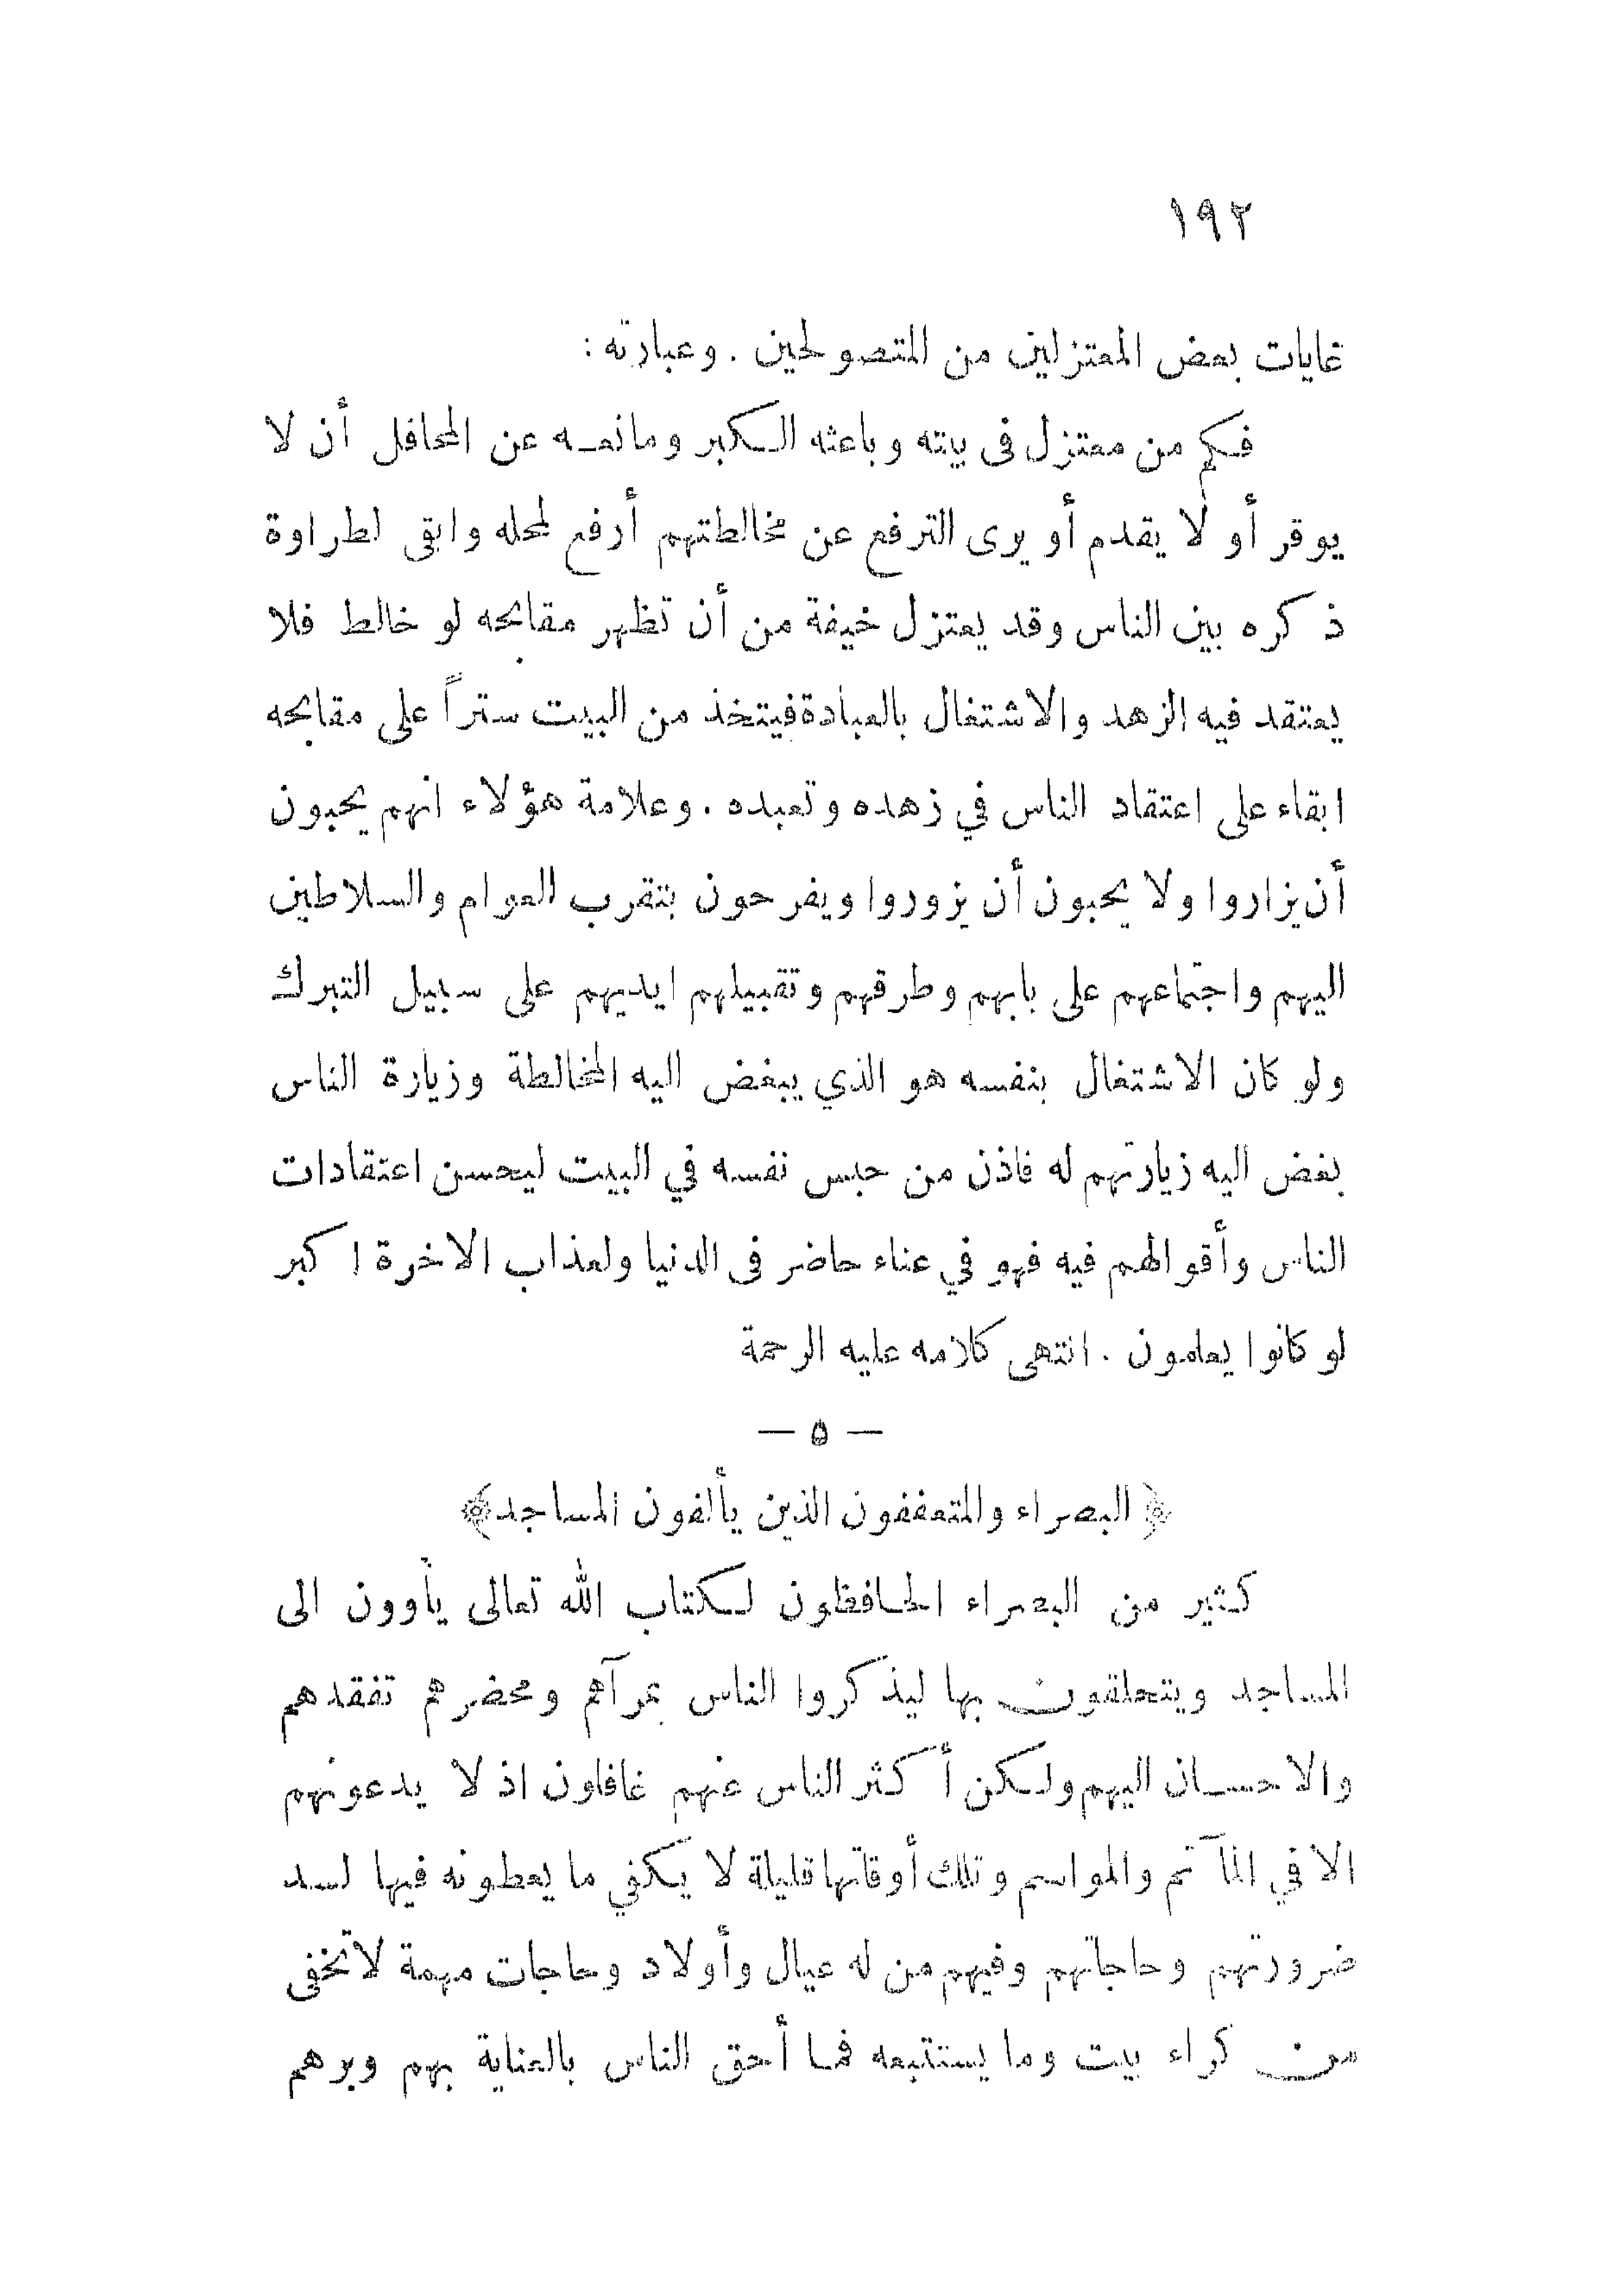 ١٩٢
غايات بعض المعتزلين من المتصولحين . وعبارته :
فكم من معتزل فى بيته وباعثه الكبر ومانعه عن المحافل أن لا
يوقر أو لا يقدم أو يرى الترفع عن مخالطتهم أرفع لمحله وابقى لطراوة
ذكره بين الناس وقد يعتزل خيفة من أن تظهر مقابحه لو خالط فلا
يعتقد فيه الزهد والاشتغال بالعبادة فيتخذ من البيت ستراً على مقابحه
ابقاء على اعتقاد الناس في زهده وتعبده . وعلامة هؤلاء انهم يحبون
أن يزاروا ولا يحبون أن يزوروا ويفرحون بتقرب العوام والسلاطين
اليهم واجتماعهم على بابهم وطرقهم وتقبيلهم ايديهم على سبيل التبرك
ولو كان الاشتغال بنفسه هو الذي يبغض اليه المخالطة وزيارة الناس
بغض اليه زيارتهم له فاذن من حبس نفسه في البيت ليحسن اعتقادات
الناس وأقوالهم فيه فهو في عناء حاضر فى الدنيا ولعذاب الاخرة اكبر
لو كانوا يعلمون . انتهى كلامه عليه الرحمة
— ٥ —
﴿ البصراء والمتعففون الذين يألفون المساجد ﴾
كثير من البصراء الحافظون لكتاب الله تعالى يأوون الى
المساجد ويتحلقون بها ليذكروا الناس بمرآهم ومحضرهم تفقدهم
والاحسان اليهم ولكن أكثر الناس عنهم غافلون اذ لا يدعونهم
الا في المآتم والمواسم وتلك أوقاتها قليلة لا يكفي ما يعطونه فيها لسد
ضرورتهم وحاجاتهم وفيهم من له عيال وأولاد وحاجات مهمة لا تخفى
من كراء بيت وما يستتبعه فما أحق الناس بالعناية بهم وبرهم